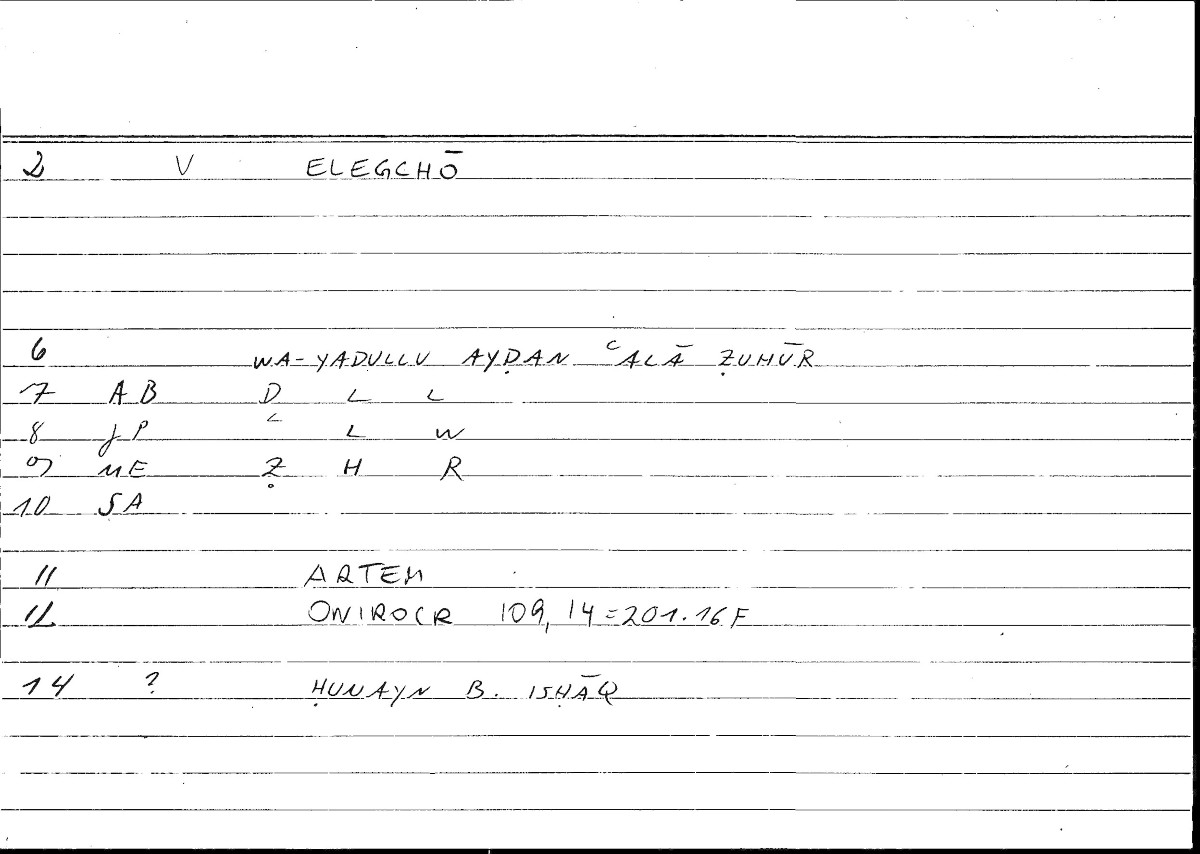 2 V ELEGCHŌ
6 WA-YADULLU AYḌAN ʿALĀ ẒUHŪR
7 AB D L L
8 JP ʿ L W
9 ME Ẓ H R
10 SA
11 ARTEM
12 ONIROCR 109,14=201.16F
14 ? ḤUNAYN B. ISḤĀQ